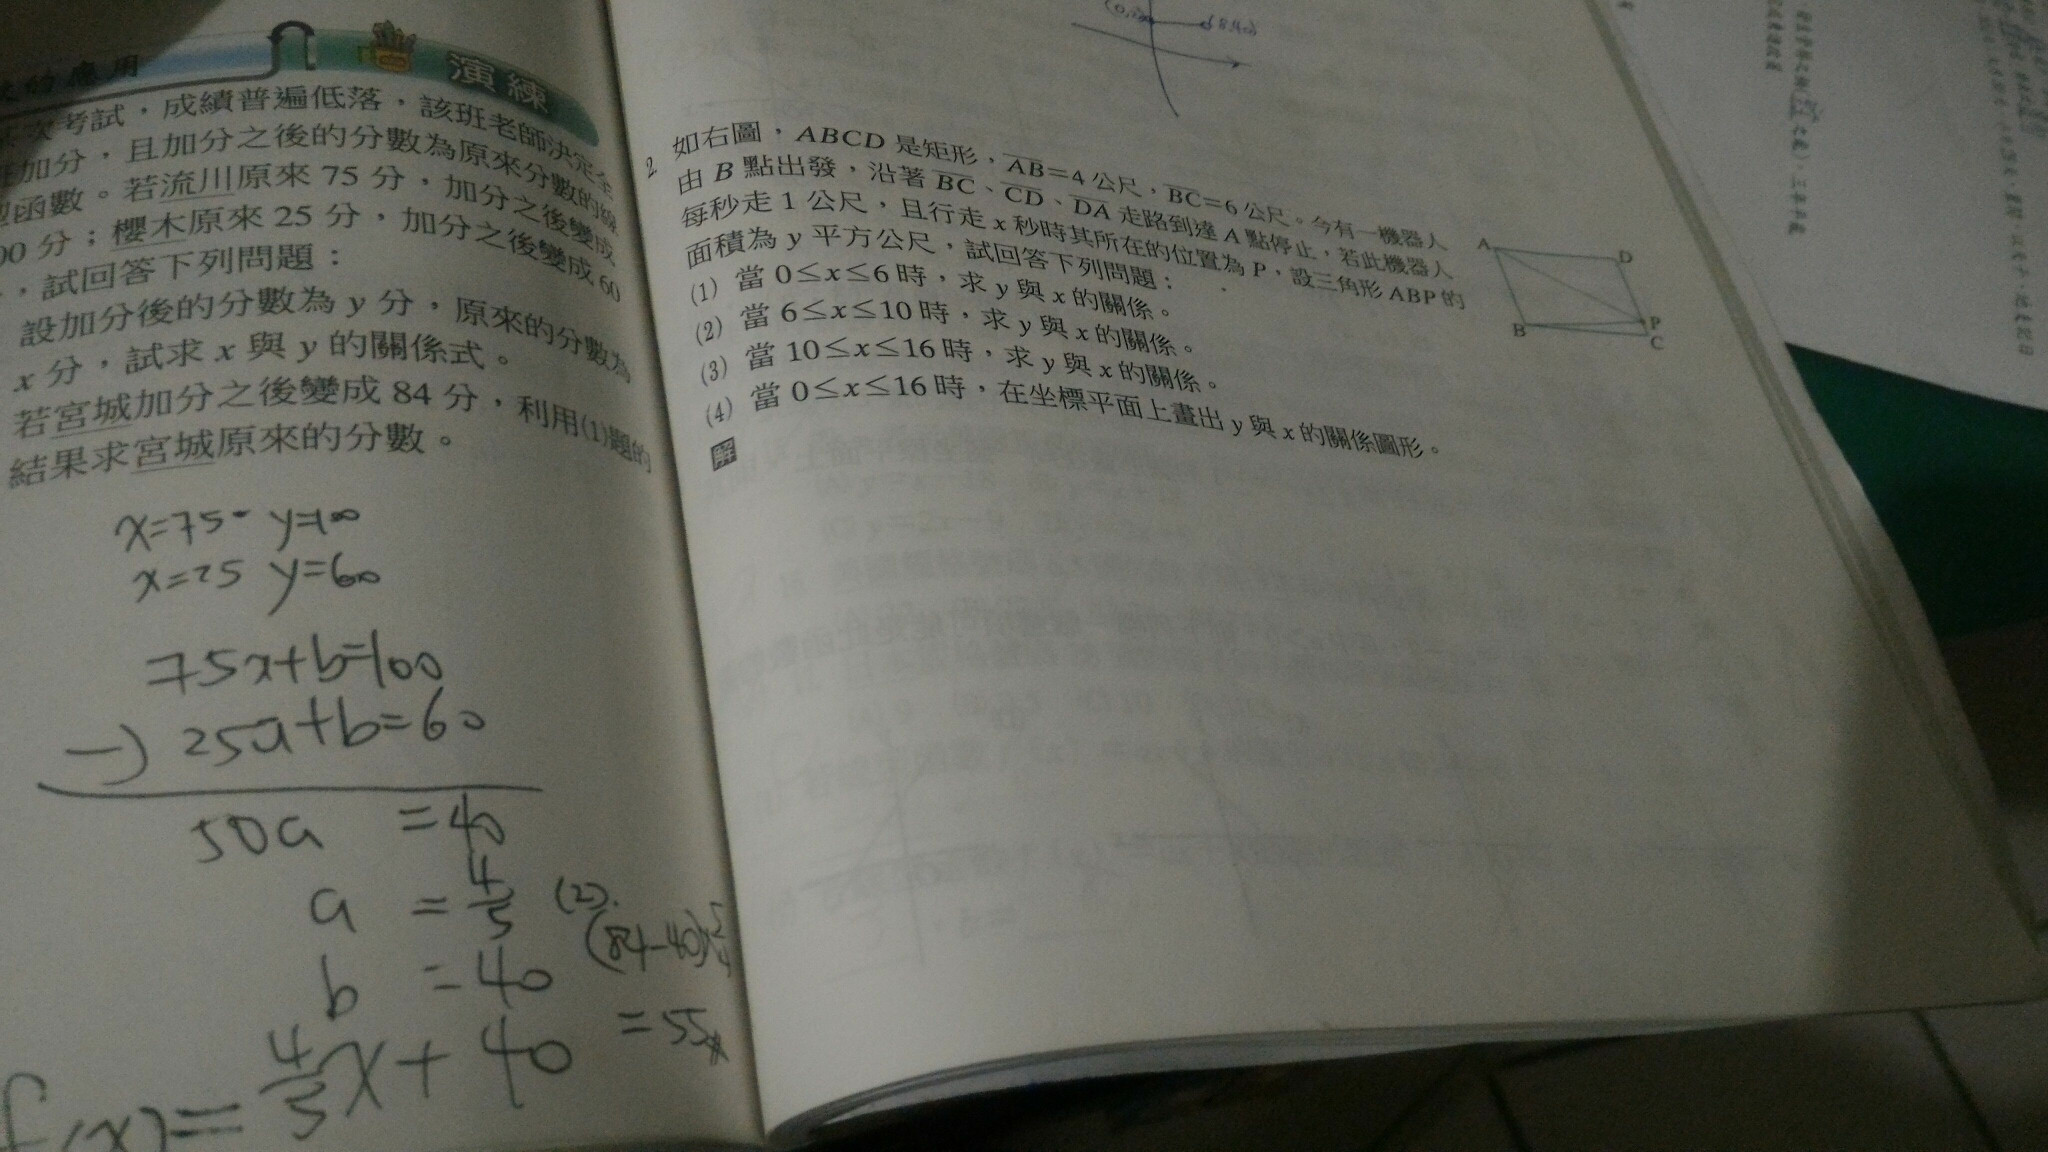 的應用
演練
次考試，成績普遍低落，該班老師決定全
加分，且加分之後的分數為原來分數的線
函數。若流川原來 75 分，加分之後變成
00 分；櫻木原來 25 分，加分之後變成 60
，試回答下列問題：
設加分後的分數為 y 分，原來的分數為
x 分，試求 x 與 y 的關係式。
若宮城加分之後變成 84 分，利用(1)題的
結果求宮城原來的分數。
x=75 y=100
x=25 y=60
75x+b=100
-) 25a+b=60
50a =40
a = 4/5
b =40
f(x)= 4/5 x + 40
(2).
(84-40)
= 55#
2. 如右圖，ABCD 是矩形，AB=4 公尺，BC=6 公尺。今有一機器人
由 B 點出發，沿著 BC、CD、DA 走路到達 A 點停止，若此機器人
每秒走 1 公尺，且行走 x 秒時其所在的位置為 P，設三角形 ABP 的
面積為 y 平方公尺，試回答下列問題：
(1) 當 0≤x≤6 時，求 y 與 x 的關係。
(2) 當 6≤x≤10 時，求 y 與 x 的關係。
(3) 當 10≤x≤16 時，求 y 與 x 的關係。
(4) 當 0≤x≤16 時，在坐標平面上畫出 y 與 x 的關係圖形。
解
A
D
B
P
C